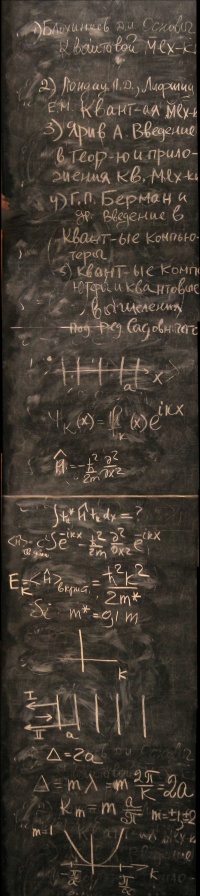 1) Блохинцев Д.И. Основы
Квантовой Мех-к
2) Ландау Л.Д., Лифшиц
Е.М. Квант-ая Мех-к
3) Ярив А. Введение
в теор-ю и прило-
жения кв. Мех-к
4) Г.П. Берман и
др. Введение в
квант-ые компью-
теры
5) Квант-ые комп
ютеры и квантовые
вычисления
под ред. Садовничего
a x
Ψₖ(x) = Uₖ(x)e^{ikx}
Ĥ = -ħ²/2m ∂²/∂x²
∫Ψₖ* Ĥ Ψₖ dx = ?
e^{-ikx} ħ²/2m ∂²/∂x² e^{ikx}
Eₖ = <Ĥ> = ħ²k²/2m*
Si m* = 0,91 m
k
I
II a
Δ = 2a
Δ = mλ = m 2π/K = 2a
m = ±1, ±2
m=1
-π/a π/a k